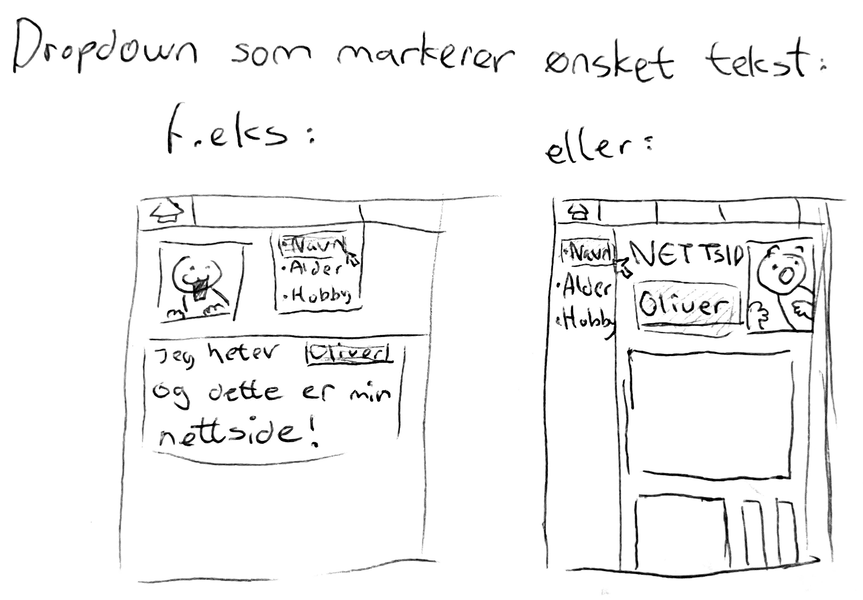 Dropdown som markerer ønsket tekst:
f.eks:
eller:
• Navn
• Alder
• Hobby
Jeg heter Oliver
og dette er min
nettside!
• Navn
• Alder
• Hobby
NETTSID
Oliver